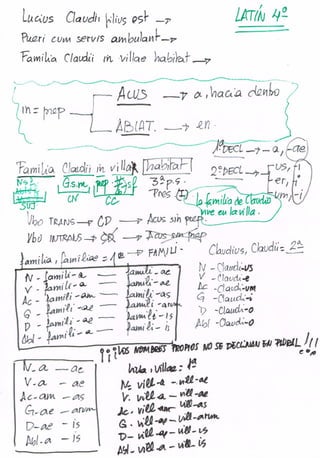 LATÍN 4º
Lucius Claudii filius est →
Pueri cum servis ambulant →
Familia Claudii in villae habitat →
in = prep
ACUS → a, hacia dentro
ABLAT. → en.
1ªDECL → -a, -ae
2ªDECL → -us, -i
-er, -i
-um, -i
Familia Claudii in villa habitat
G.s.m. prep
SUJ CN CC
3ª p.s.
Pres
la familia de Claudio
vive en la villa.
Vbo TRANS → CD → Acus sin prep.
Vbo INTRANS → CD → Acus sin prep
familia, familiae = 1ª → FAMILI-
N - famili-a — famili-ae
V - famili-a — famili-ae
Ac - famili-am — famili-as
G - famili-ae — famili-arum
D - famili-ae — famili-is
Abl - famili-a — famili-is
Claudius, Claudii = 2ª
N - Claudi-us
V - Claudi-e
Ac - Claudi-um
G - Claudi-i
D - Claudi-o
Abl - Claudi-o
¡¡¡LOS NOMBRES PROPIOS NO SE DECLINAN EN PLURAL!!!
N-a — ae
V-a — ae
Ac-am — as
G-ae — arum
D-ae — is
Abl-a — is
villa, villae = 1ª
N- vill-a - vill-ae
V. vill-a — vill-ae
Ac. vill-am vill-as
G. vill-ae — vill-arum
D- vill-ae — vill-is
Abl- vill-a - vill-is